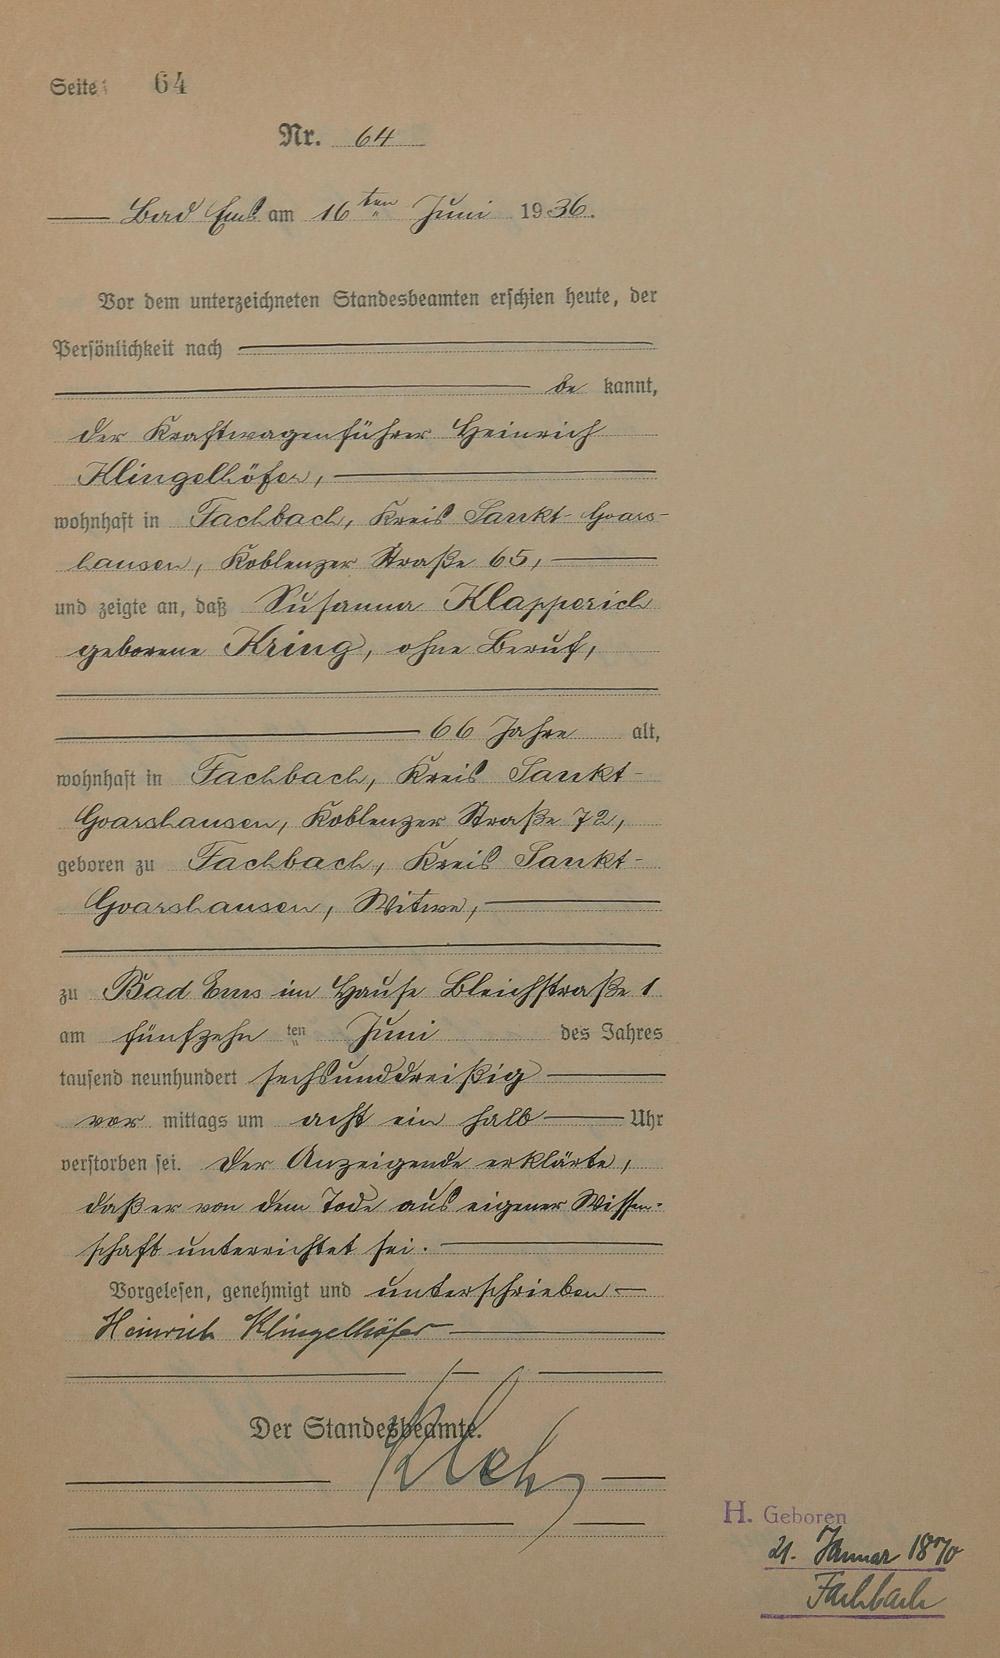 Seite 64
Nr. 64
Bad Ems am 16ten Juni 1936.
Vor dem unterzeichneten Standesbeamten erschien heute, der
Persönlichkeit nach
be kannt,
der Kraftwagenführer Heinrich
Klingelhöfer,
wohnhaft in Fachbach, Kreis Sankt Goars-
hausen, Koblenzer Straße 65,
und zeigte an, daß Susanna Klapperich
geborene Kring, ohne Beruf,
66 Jahre alt,
wohnhaft in Fachbach, Kreis Sankt-
Goarshausen, Koblenzer Straße 72,
geboren zu Fachbach, Kreis Sankt-
Goarshausen, Witwe,
zu Bad Ems im Hause Bleichstraße 1
am fünfzehn ten Juni des Jahres
tausend neunhundert sechsunddreißig
vor mittags um acht ein halb Uhr
verstorben sei. Der Anzeigende erklärte,
daß er von dem Tode aus eigener Wissen-
schaft unterrichtet sei.
Vorgelesen, genehmigt und unterschrieben
Heinrich Klingelhöfer
Der Standesbeamte.
H. Geboren
21. Januar 1870
Fachbach